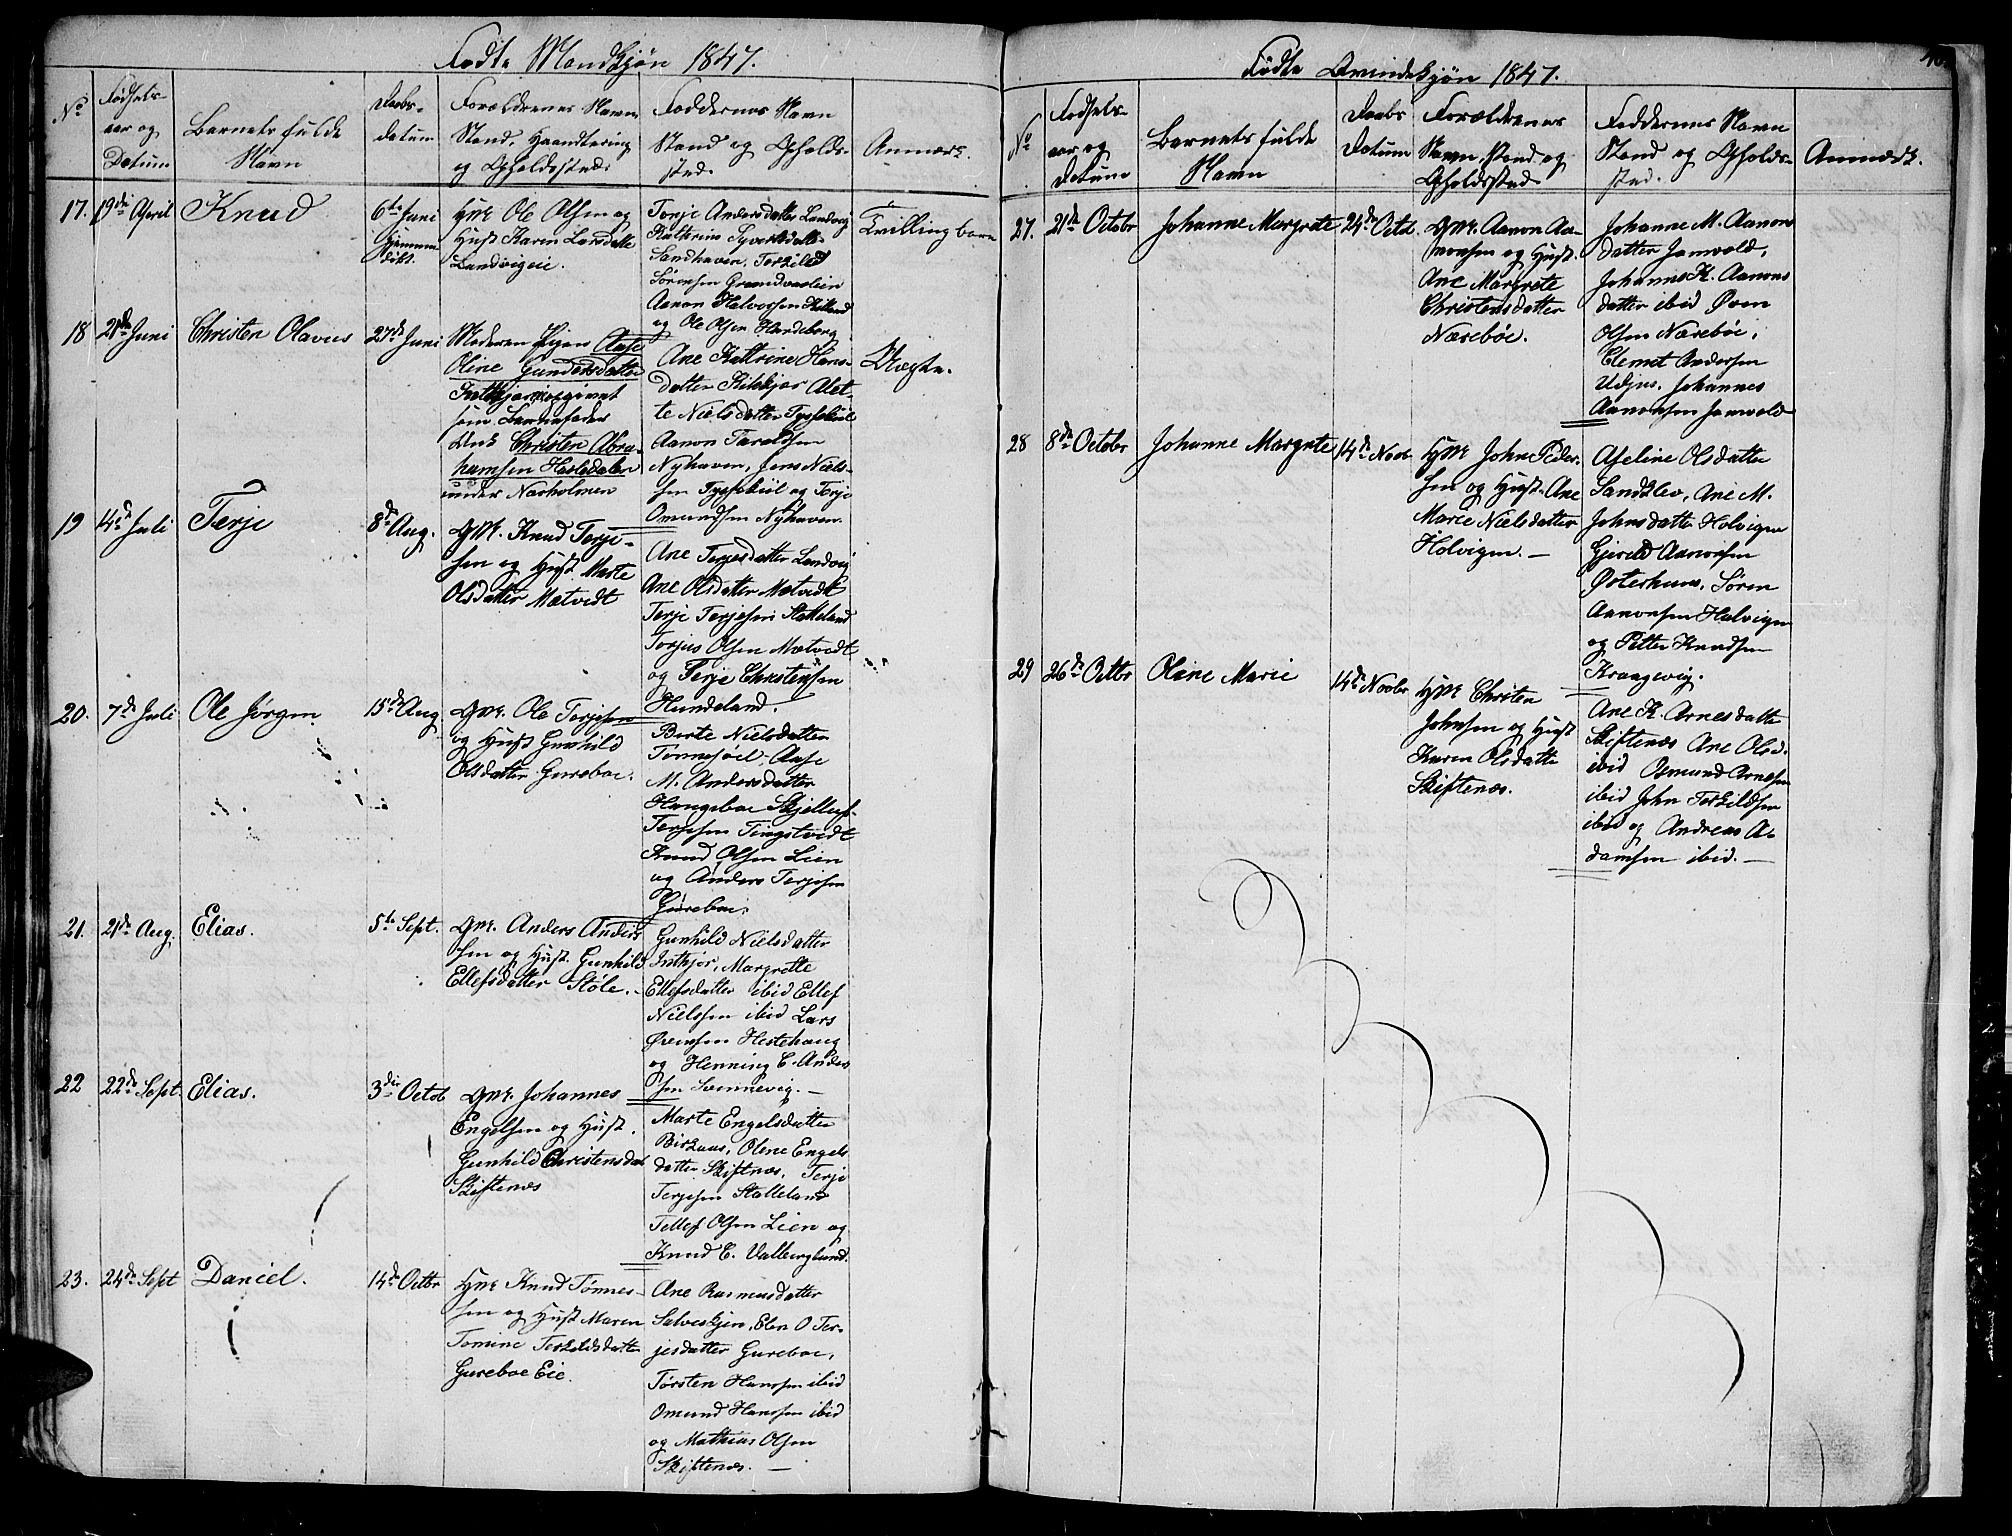 Fødte Mandkjøn 1847.
No
Fødsels-
aar og
Datum
Barnets fulde
Navn
Daabs-
datum
Forældrenes Navn
Stand, Haandtering
og Opholdssted.
Faddernes Navn
Stand og Opholds-
sted.
Anmærk.
17.
19de April
Knud
6te Juni
Hjemme
døbt.
Ole Olsen og
Hust Karen Larsdatte
Landvigeie.
Torje Andersdatter Landvig
Kathrine
Sandhaven, Terkild
Sørensen
Aanon Halvorsen
og Ole Olsen Hardeberg
Tvillingbarn
18
21de Juni
Christen Olavus
27de Juni
Moderen Pigen Aase
Oline Gundersdatter
Inthjør
som Barnefader
Christen Abra-
hamsen Hasledalen
under Narholmen
Ane Kathrine Hans-
datter Kilekjær Alet-
te Nielsdatter
Aanon Taraldsen
Nyhaven, Jens Niels-
sen og Terje
Omundsen Nyhaven.
Uægte.
19
14de Juli
Terje
8de Aug.
Gm. Knud Terje-
sen og Hust Marte
Olsdatter Mætvedt
Ane Terjesdatter Landvig
Ane Olsdatter Mætvedt
Terje Terjesen Stalleland
Torjus Olsen Mætvedt
og Terje Christensen
Hundeland.
20.
7de Juli
Ole Jørgen
15de Aug
Gm. Ole Terjesen
og Hust Gunhild
Olsdatter Gureboe.
Berte Nielsdatter
Tønnesøel, Aase
M. Andersdatter
Haugeboe Skjellef
Terjesen Tingstvedt
Knud Olsen Lien
og Anders Terjesen
Gureboe.
21.
21de Aug.
Elias.
5te Sept.
Gm. Anders Anders
sen og Hust. Gunhild
Ellefsdatter Støle.
Gunhild Nielsdatter
Inthjør, Margrethe
Ellefsdatter ibid Ellef
Nielssen ibid Lars
Øvensen Hestehaug
og Henning C. Anders
sen Svennevig.
22
22de Sept.
Elias.
3die Octob
Gm. Johannes
Engelsen og Hust.
Gunhild Christensdat
Skiftenæs
Marte Engelsdatter
Birkaas, Olene Engels
datter Skiftenæs, Terje
Terjesen Stalleland
Tellef Olsen Lien og
Knud E. Valberglund.
23.
24de Sept
Daniel.
14de Octbr
Knud Tønnes-
sen og Hust Maren
Tomine Terkildsdatte
Gureboe Eie.
Ane Rasmusdatter
Salveskjen, Elen O Ter-
jesdatter Gureboe,
Torsten Hanssen ibid
Omund Hanssen ibid
og Mathias Olsen
Skiftenæs. —
Fødte Qvindekjøn 1847.
No
Fødsels-
aar og
Datum
Barnets fulde
Navn
Daabs
Datum
Forældrenes
Navn, Stand og
Opholdssted
Faddernes Navn
Stand og Opholds-
sted.
Anmærk.
27.
21de Octobr
Johanne Margrete
24de Octob.
Gm. Aanon Aa-
nonsen og Hust.
Ane Margrete
Christensdatter
Næsebøe.
Johanne M. Aanons
datter Jamvold,
Johanne K. Aanons
datter ibid Øven
Olsen Næsebøe,
Clemet Andersen
Udjus, Johannes
Aanonsen Jamvold
28
8de Octobr
Johanne Margrete
14de Novb
John Peder-
sen og Hust. Ane
Marie Nielsdatter
Holvigen. —
Aseline Olsdatter
Sandklev, Ane M.
Johnsdatte Holvigen
Gjeruld Aanonsen
Østerhuus, Søren
Aanonsen Holvigen
og Petter Knudsen
Kraagevig.
29
26de Octbr
Oline Marie
14de Novbr
Christen
Johnsen og Hust
Karen Olsdatte
Skiftenæs.
Ane K. Arnesdatte
Skiftenæs Ane Olsd.
ibid Osmund Arnesen
ibid John Terkildsen
ibid og Andreas A-
damsen ibid. —